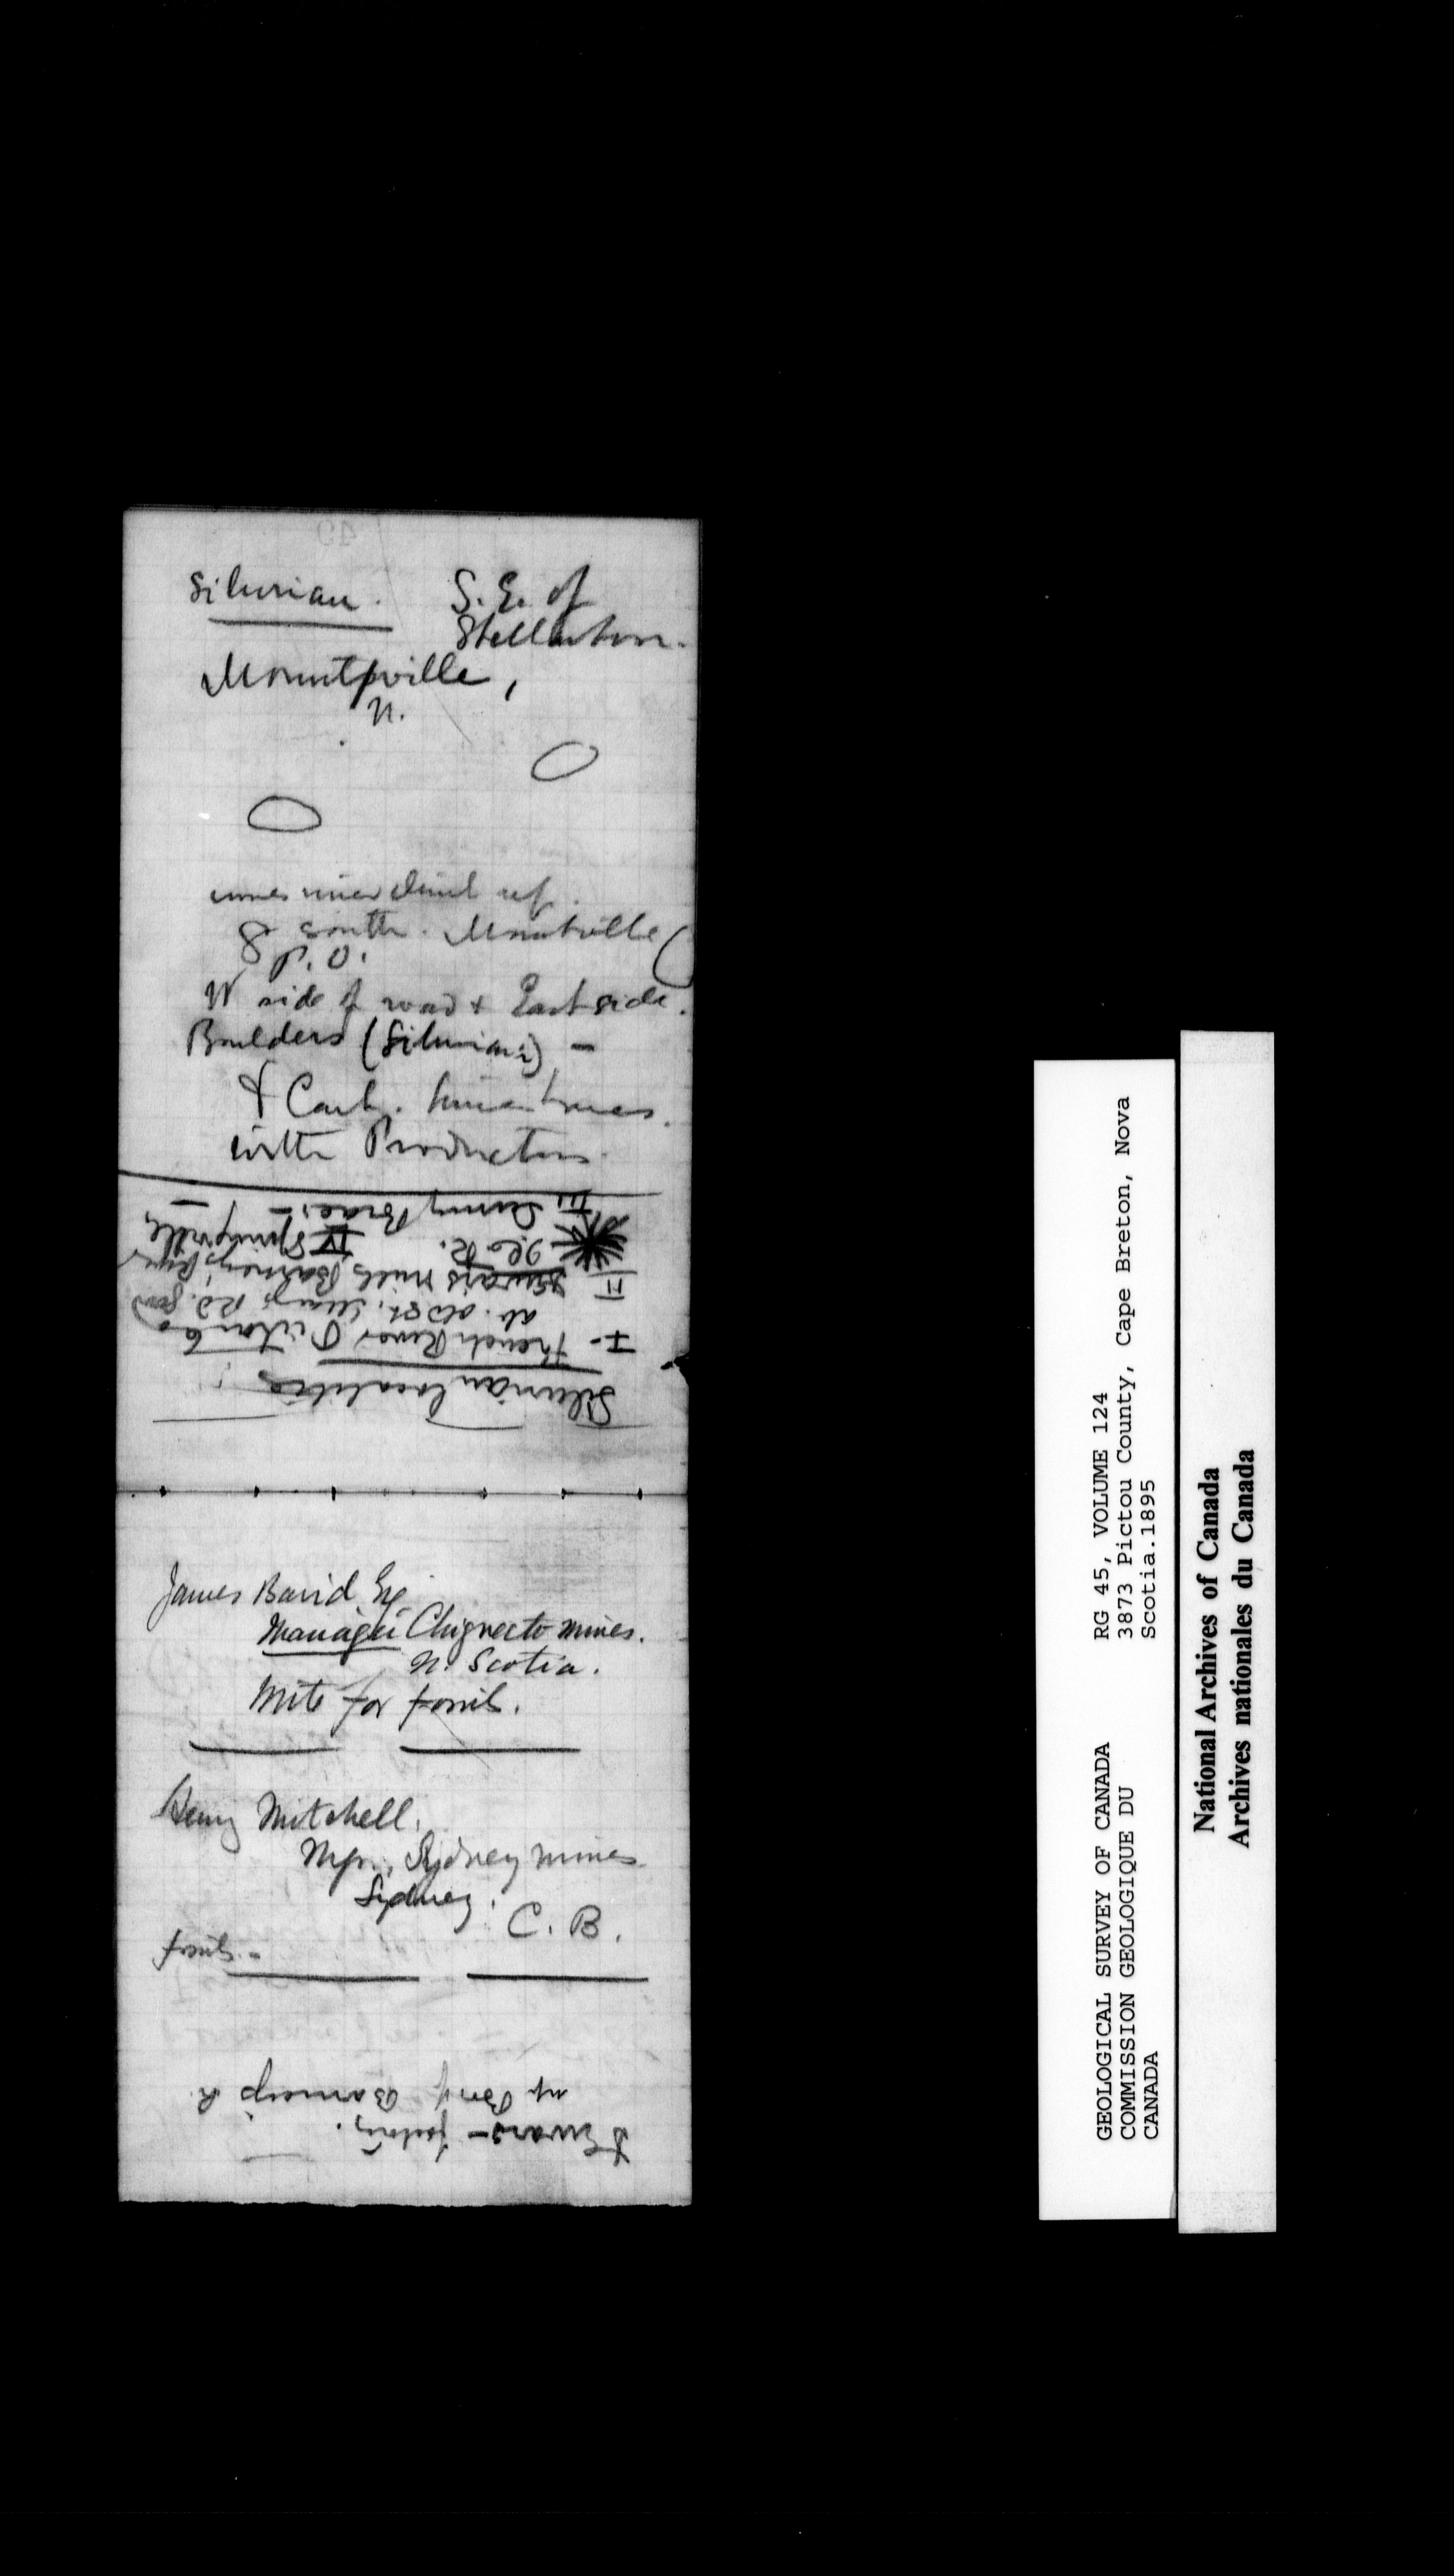 Silurian. S. E. of
Stellarton.
Mountville,
n.
& south. Mountville
P. O.
W side of road & East side.
Boulders (Silurian) –
& Carb. limestones.
with Productus.
Silurian localities
I – French River Pictou Co
II Barney's River
III Sunny Brae. –
IV Springville
James Baird, Esq.
Manager Chignecto mines.
N. Scotia.
Write for fossils.
Henry Mitchell,
Mgr., Sydney mines
Sydney,
C. B.
fossils. –
Barney's R.
GEOLOGICAL SURVEY OF CANADA
COMMISSION GEOLOGIQUE DU
CANADA
RG 45, VOLUME 124
3873 Pictou County, Cape Breton, Nova
Scotia.1895
National Archives of Canada
Archives nationales du Canada